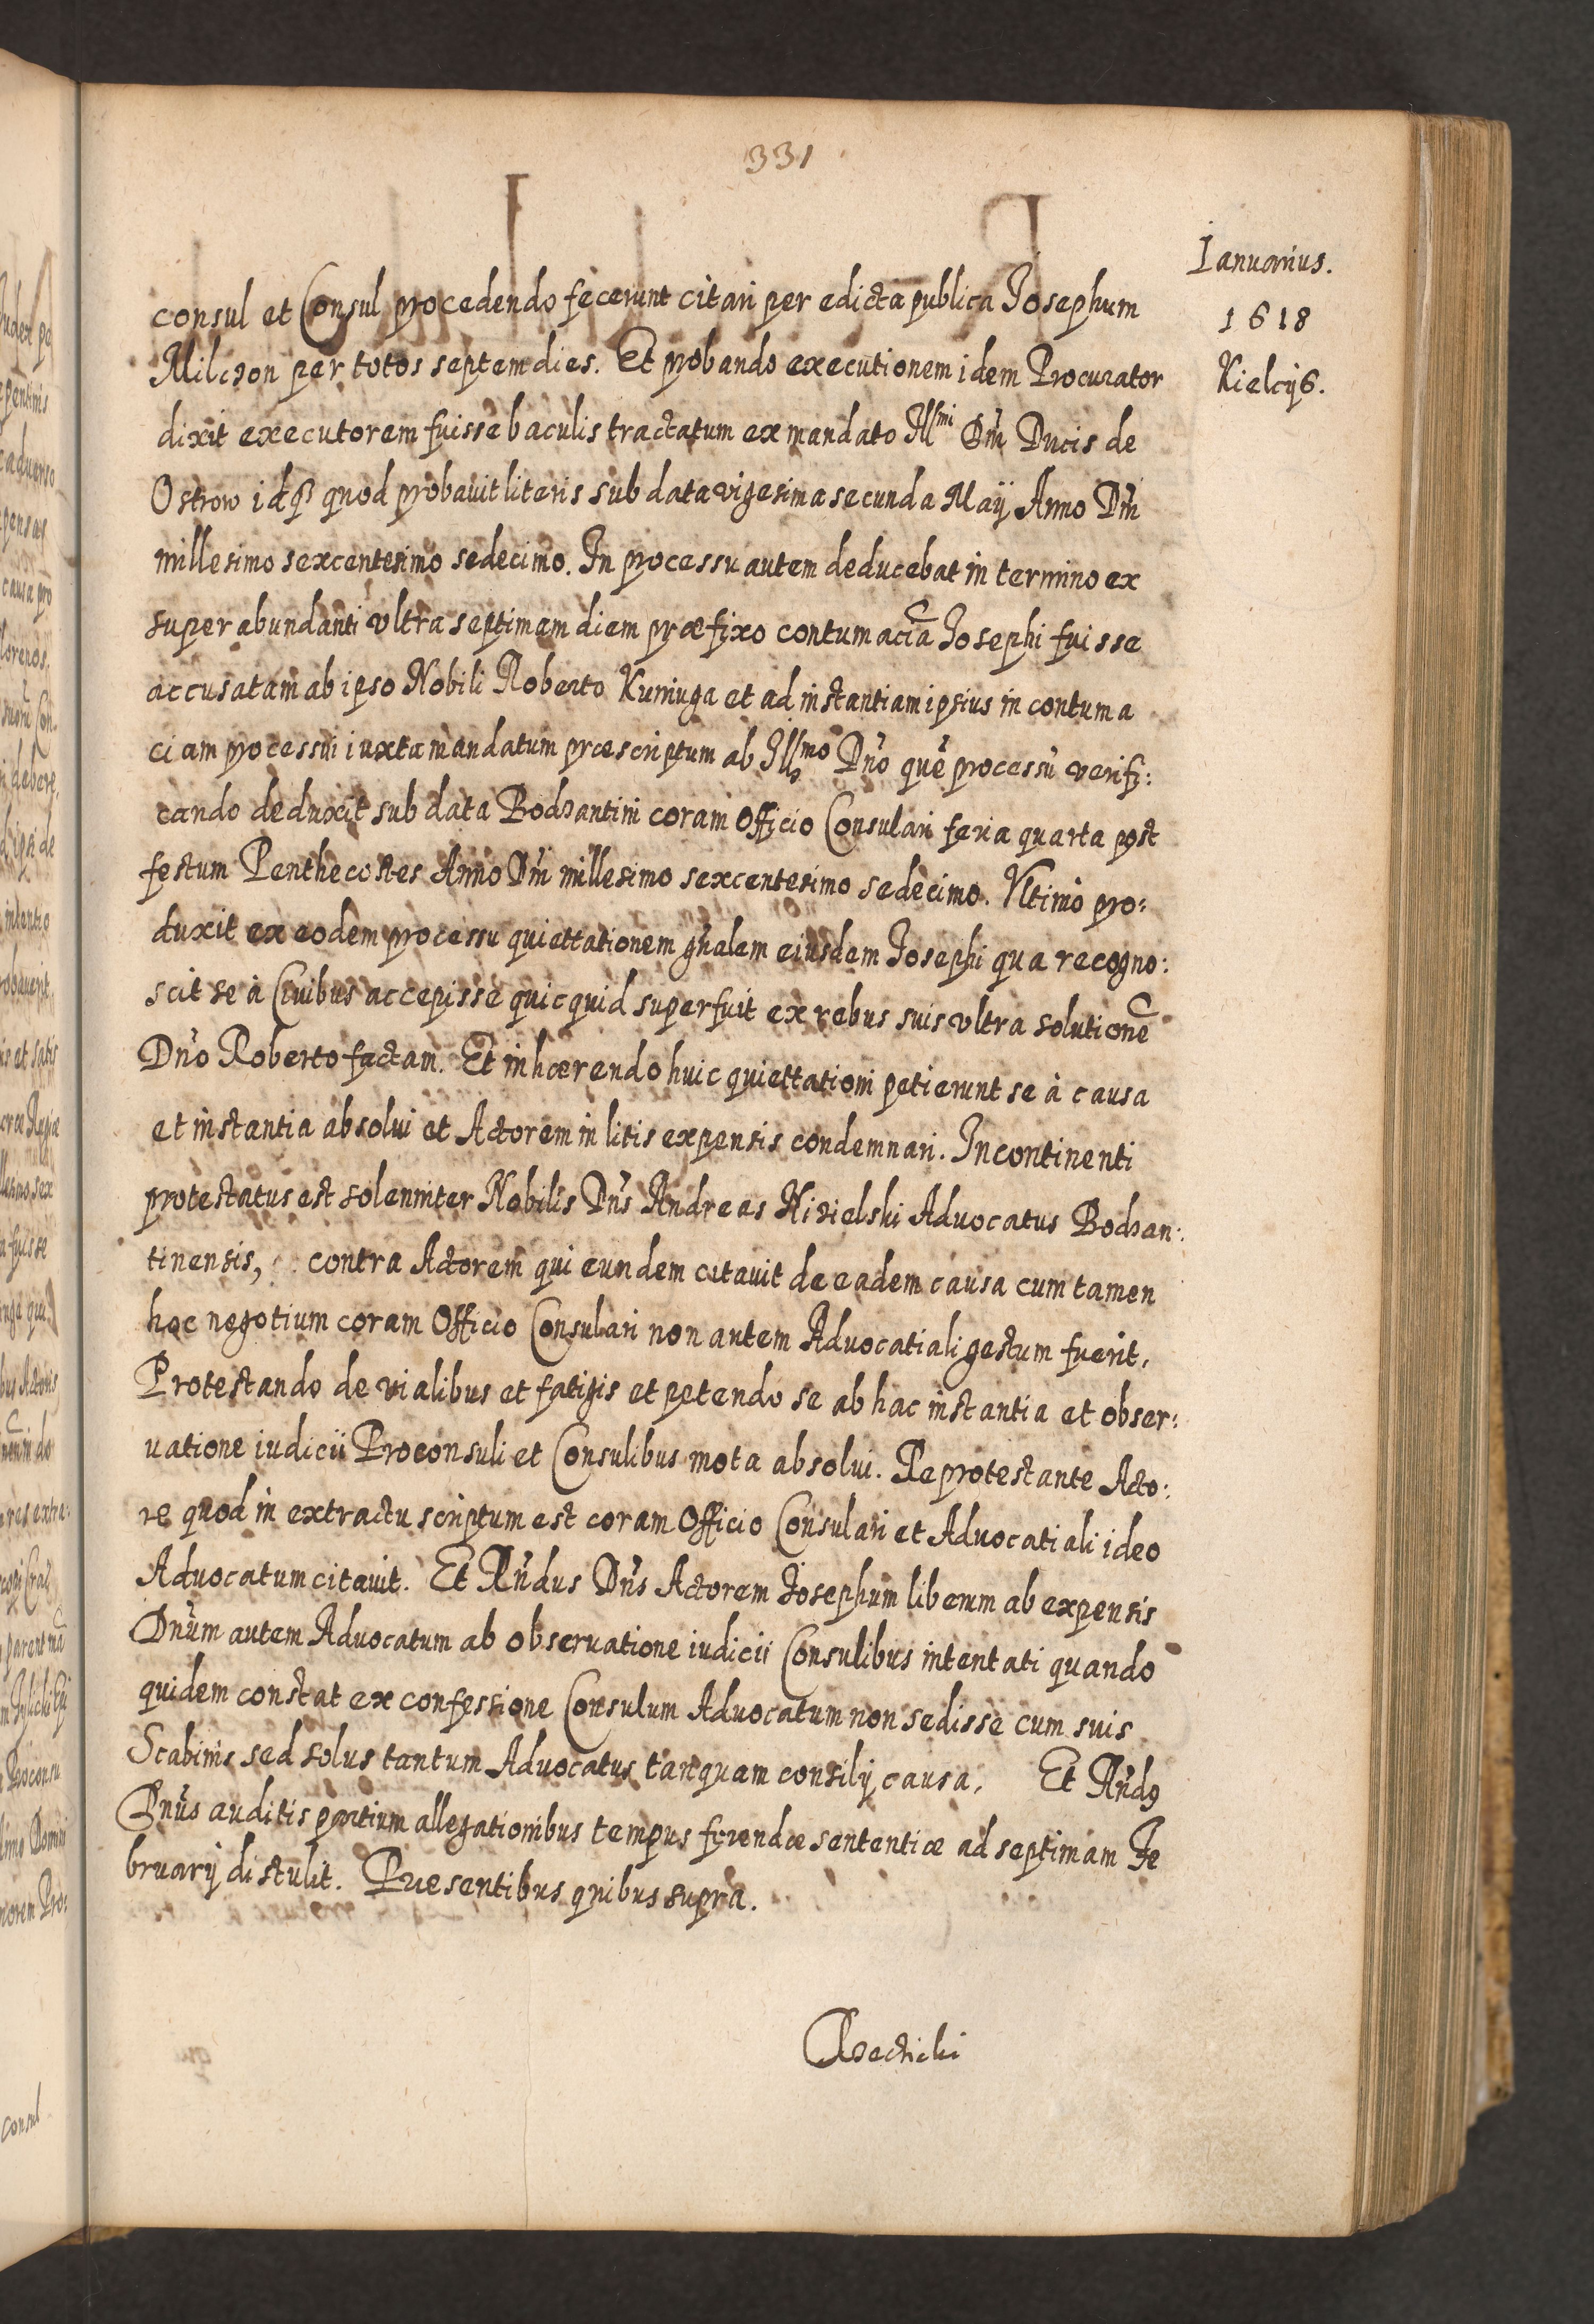 331
Ianuarius.
1618
Kielcijs.
consul et Consul procedendo fecerunt citari per edicta publica Josephum
Milczon per totos septem dies. Et probando executionem idem Procurator
dixit executorem fuisse baculis tractatum ex mandato Illmi Dni Ducis de
Ostrow idq̃ quod probauit literis sub data vigesima secunda Maij Anno Dni
millesimo sexcentesimo sedecimo. In processu autem deducebat in termino ex
superabundanti vltra septimam diem præfixo contumaciã Josephi fuisse
accusatam ab ipso Nobili Roberto Kuniuga et ad instantiam ipsius in contuma
ciam processui iuxta mandatum præscriptum ab Illmo Dno quẽ processũ verifi:
cando deduxit sub data Bodzantini coram Officio Consulari feria quarta post
festum Penthecostes Anno Dni millesimo sexcentesimo sedecimo. Vltimò pro:
duxit ex eodem processu quiettationem gnalem eiusdem Josephi qua recogno:
scit se à Ciuibus accepisse quicquid superfuit ex rebus suis vltra solutionẽ
Dno Roberto factam. Et inhærendo huic quiettationi petierunt se à causa
et instantia absolui et Actorem in litis expensis condemnari. In continenti
protestatus est solenniter Nobilis Dns Andreas Kisielski Aduocatus Bodzan:
tinensis, contra Actorem qui eundem citauit de eadem causa cum tamen
hoc negotium coram Officio Consulari non autem Aduocatiali gestum fuerit,
Protestando de vialibus et fatigis et petendo se ab hac instantia et obser:
uatione iudicii Proconsuli et Consulibus mota absolui. Reprotestante Acto:
re quod in extractu scriptum est coram Officio Consulari et Aduocatiali ideo
Aduocatum citauit. Et Rndus Dns Actorem Josephum liberum ab expensis
Dnum autem Aduocatum ab obseruatione iudicii Consulibus intentati quando
quidem constat ex confessione Consulum Aduocatum non sedisse cum suis
Scabinis sed solus tantum Aduocatus tanquam consilij causa, Et Rndꝰ
Dnus auditis partium allegationibus tempus ferendæ sententiæ ad septimam Fe
bruarij distulit. Præsentibus quibus supra.